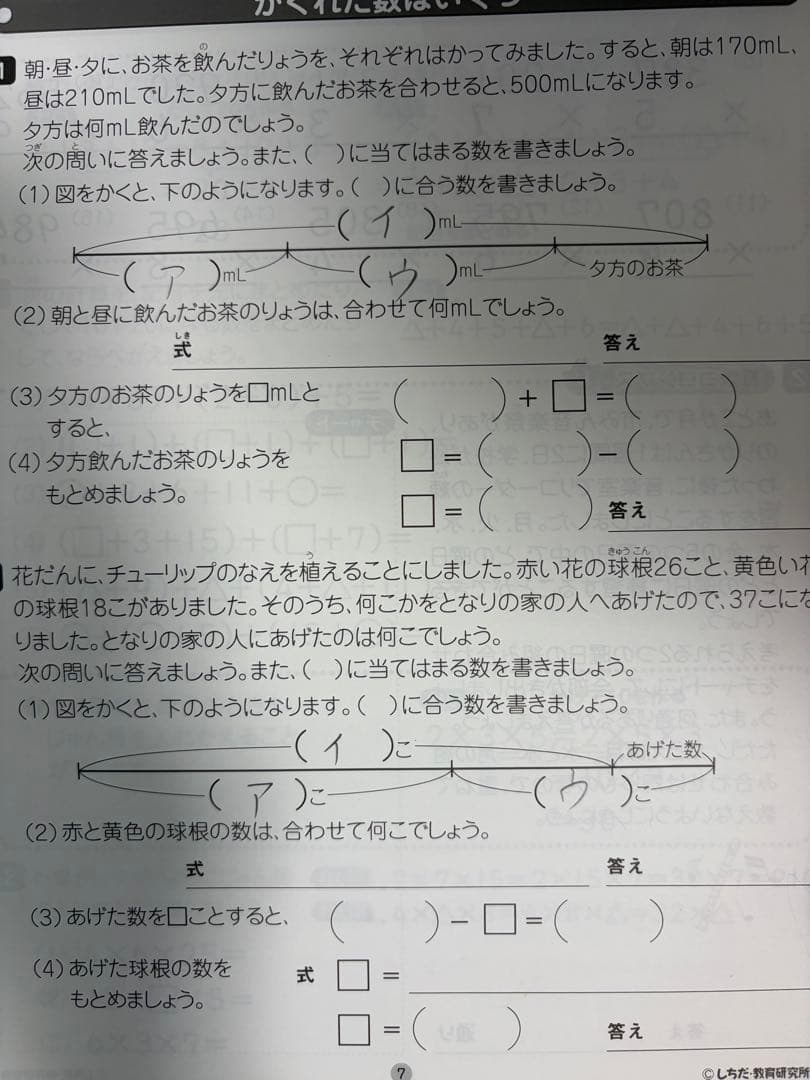 かくれた数はいくつ
1 朝・昼・夕に、お茶を飲んだりょうを、それぞれはかってみました。すると、朝は170mL、
昼は210mLでした。夕方に飲んだお茶を合わせると、500mLになります。
夕方は何mL飲んだのでしょう。
次の問いに答えましょう。また、( )に当てはまる数を書きましょう。
(1) 図をかくと、下のようになります。( )に合う数を書きましょう。
(イ)mL
(ア)mL (ウ)mL 夕方のお茶
(2) 朝と昼に飲んだお茶のりょうは、合わせて何mLでしょう。
式 答え
(3) 夕方のお茶のりょうを□mLと ( ) + □ = ( )
すると、
(4) 夕方飲んだお茶のりょうを □ = ( ) − ( )
もとめましょう。 □ = ( ) 答え
花だんに、チューリップのなえを植えることにしました。赤い花の球根26こと、黄色い花
の球根18こがありました。そのうち、何こかをとなりの家の人へあげたので、37こにな
りました。となりの家の人にあげたのは何こでしょう。
次の問いに答えましょう。また、( )に当てはまる数を書きましょう。
(1) 図をかくと、下のようになります。( )に合う数を書きましょう。
(イ)こ あげた数
(ア)こ (ウ)こ
(2) 赤と黄色の球根の数は、合わせて何こでしょう。
式 答え
(3) あげた数を□ことすると、 ( ) − □ = ( )
(4) あげた球根の数を 式 □ =
もとめましょう。 □ = ( ) 答え
7 ©しちだ・教育研究所